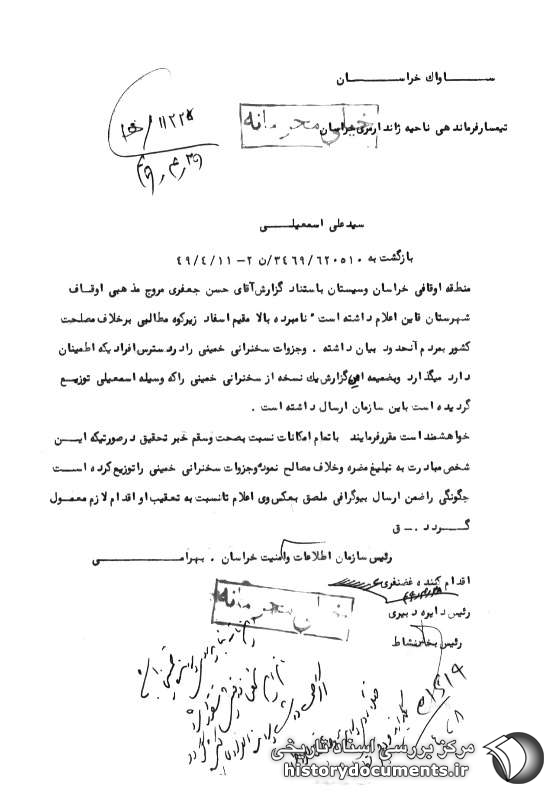 ســـــاواك خراســـــــان
۱۱۲۲۵/ه‍ا
خیلی محرمانه
تیمسار فرماندهی ناحیه ژاندارمری خراسان
سید علی اسمعیلـــی
بازگشت به ۳۴۶۹/۶۲۰۵۱۰/ن ۲- ۴۹/۴/۱۱
منطقه اوقافی خراسان وسیستان باستناد گزارش آقای حسن جعفری مروج مذهبی اوقــاف
شهرستان قاین اعلام داشته است " نامبرده بالا مقیم اسفاد زیرکوه مطالبی برخلاف مصلحت
کشور بمردم آنحدود بیان داشته . وجزوات سخنرانی خمینی را در دسترس افرادیکه اطمینان
دارد میگذارد وبضمیمه این گزارش یك نسخه از سخنرانی خمینی راکه وسیله اسمعیلی توزیــع
گردیده است باین سازمان ارسال داشته است .
خواهشمند است مقرر فرمایند باتمام امکانات نسبت بصحت وسقم خبر تحقیق درصورتیکه ایــن
شخص مبادرت به تبلیغ مضره وخلاف مصالح نموده وجزوات سخنرانی خمینی را توزیع کرده اســت
چگونگی را ضمن ارسال بیوگرافی ملصق بعکس وی اعلام تا نسبت به تعقیب او اقدام لازم معمــول
گــــردد . ــ ق
رئیس سازمان اطلاعات وامنیت خراسان . بهرامــــــی
اقدام کننده غضنفری
خیلی محرمانه
رئیس دایره دبیری
رئیس بخش نشاط
مرکز بررسی اسناد تاریخی
historydocuments.ir